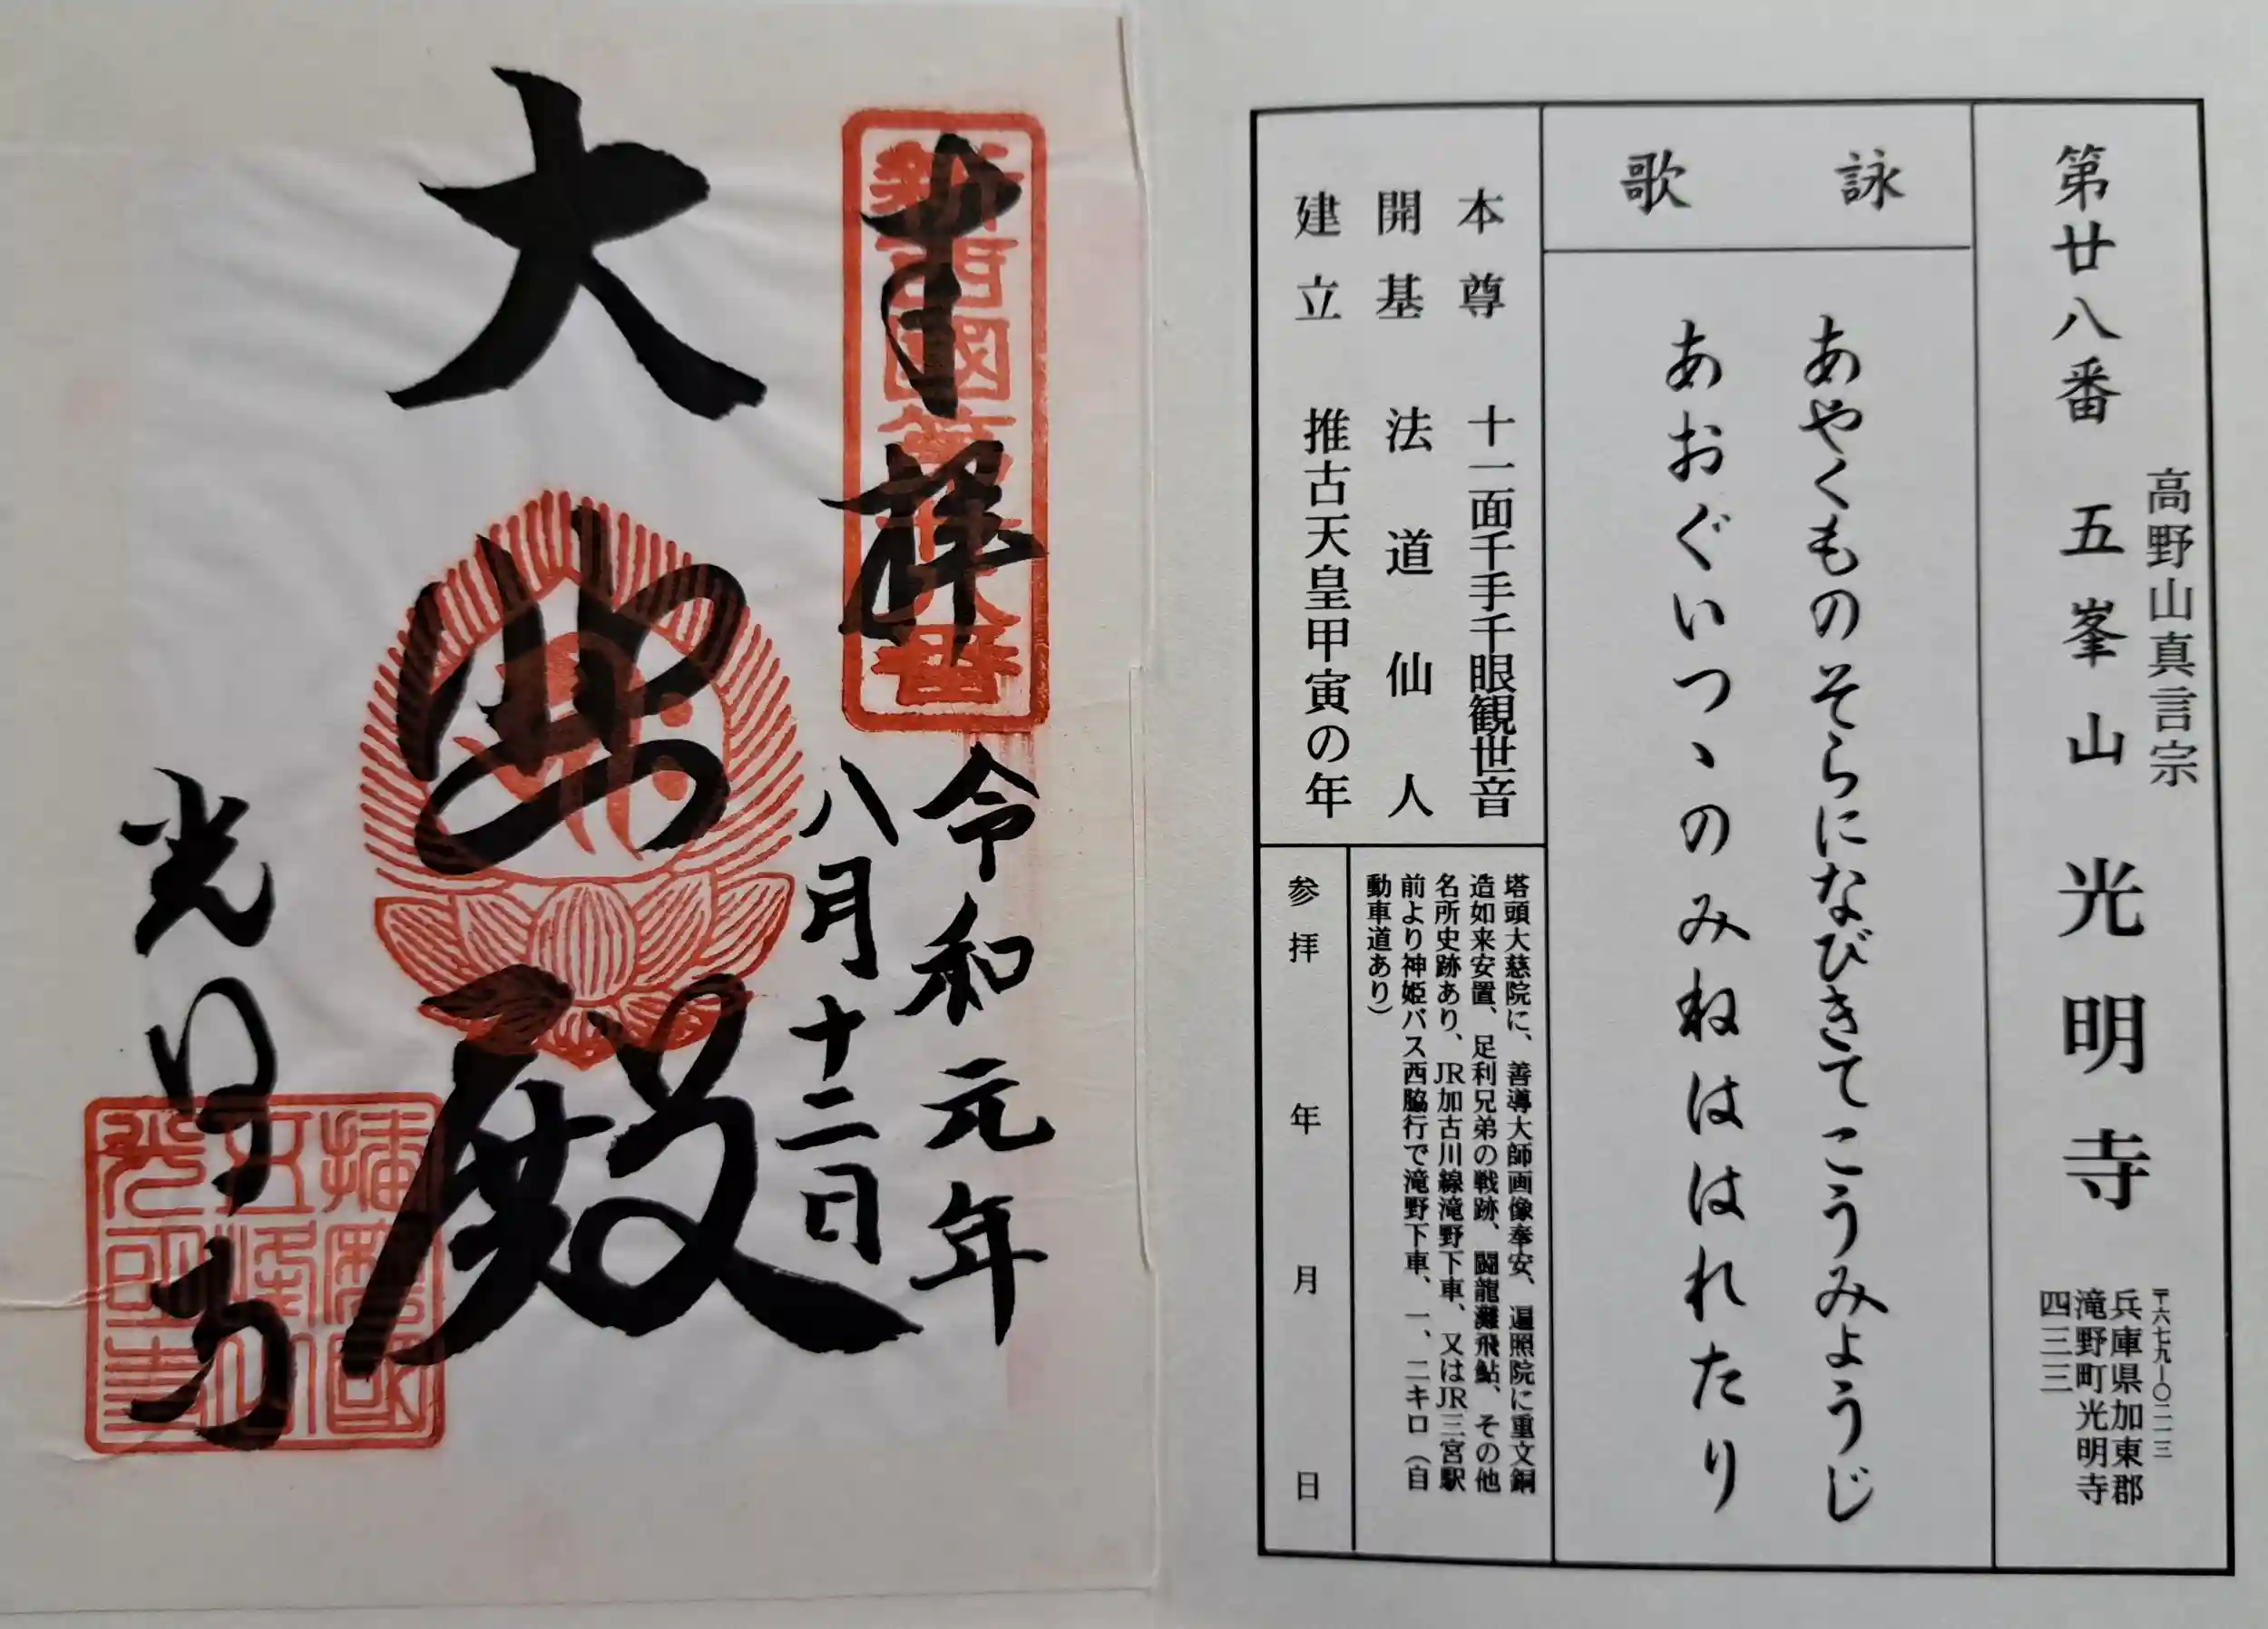 高野山真言宗
第廿八番 五峯山 光明寺
〒六七九-〇二一三
兵庫県加東郡
滝野町光明寺
四三三
詠歌
あやくものそらになびきてこうみようじ
あおぐいつヽのみねははれたり
本尊 十一面千手千眼観世音
開基 法道仙人
建立 推古天皇甲寅の年
塔頭大慈院に、善導大師画像奉安、遍照院に重文銅
造如来安置、足利兄弟の戦跡、闘龍灘飛鮎、その他
名所史跡あり、JR加古川線滝野下車、又はJR三宮駅
前より神姫バス西脇行で滝野下車、一、二キロ（自
動車道あり）
参拝 年 月 日
奉拝
新西國第廿八番
令和元年
八月十二日
大悲殿
光明寺
播磨國
五峰山
光明寺